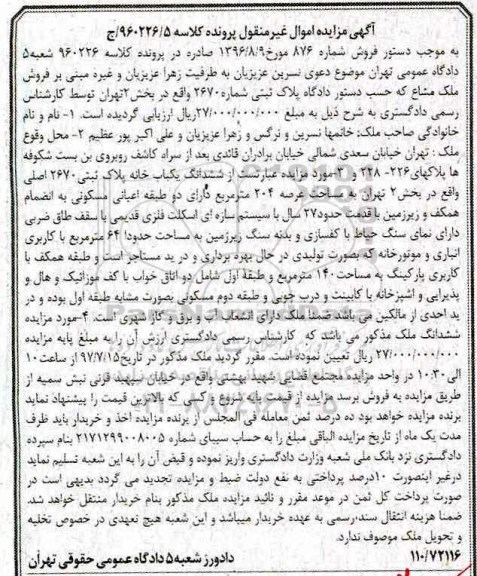 آگهی مزایده اموال غیرمنقول پرونده کلاسه ۹۶۰۲۲۶/۵/ج
به موجب دستور فروش شماره ۸۷۶ مورخ۱۳۹۶/۸/۹ صادره در پرونده کلاسه ۹۶۰۲۲۶ شعبه۵
دادگاه عمومی تهران موضوع دعوی نسرین عزیزیان به طرفیت زهرا عزیزیان و غیره مبنی بر فروش
ملک مشاع که حسب دستور دادگاه پلاک ثبتی شماره۲۶۷۰ واقع در بخش۲تهران توسط کارشناس
رسمی دادگستری به شرح ذیل به مبلغ ۲۷/۰۰۰/۰۰۰/۰۰۰ریال ارزیابی گردیده است. ۱- نام و نام
خانوادگی صاحب ملک: خانمها نسرین و نرگس و زهرا عزیزیان و علی اکبر پور عظیم ۲- محل وقوع
ملک : تهران خیابان سعدی شمالی خیابان برادران قائدی بعد از سراه کاشف روبروی بن بست شکوفه
ها پلاکهای۲۲۶- ۲۲۸ و ۳-مورد مزایده عبارتست از ششدانگ یکباب خانه پلاک ثبتی۲۶۷۰ اصلی
واقع در بخش۲ تهران به مساحت عرصه ۲۰۴ مترمربع دارای دو طبقه اعیانی مسکونی به انضمام
همکف و زیرزمین با قدمت حدود۲۷ سال با سیستم سازه ای اسکلت فلزی قدیمی با سقف طاق ضربی
دارای نمای سنگ حیاط با کفسازی و بدنه سنگ زیرزمین به مساحت حدودا ۶۴ مترمربع با کاربری
انباری و موتورخانه که بصورت تولیدی در حال بهره برداری و در ید مستاجر است و طبقه همکف با
کاربری پارکینگ به مساحت۱۴۰ مترمربع و طبقه اول شامل دو اتاق خواب با کف موزائیک و هال و
پذیرایی و اشپزخانه با کابینت و درب چوبی و طبقه دوم مسکونی بصورت مشابه طبقه اول بوده و در
ید احدی از مالکین می باشد ضمنا ملک دارای انشعابات آب و برق و گاز شهری است. ۴-مورد مزایده
ششدانگ ملک مذکور می باشد که کارشناس رسمی دادگستری ارزش آن را به مبلغ پایه مزایده
۲۷/۰۰۰/۰۰۰/۰۰۰ ریال تعیین نموده است. مقرر گردید ملک مذکور در تاریخ۹۷/۷/۱۵ از ساعت ۱۰
الی ۱۰:۳۰ در واحد مزایده مجتمع قضایی شهید بهشتی واقع در خیابان سپهبد قرنی نبش سمیه از
طریق مزایده به فروش برسد مزایده از قیمت پایه شروع و کسی که بالاترین قیمت را پیشنهاد نماید
برنده مزایده خواهد بود ده درصد ثمن معامله فی المجلس از برنده مزایده اخذ و خریدار باید ظرف
مدت یک ماه از تاریخ مزایده الباقی مبلغ را به حساب سیبای شماره ۲۱۷۱۲۹۹۰۰۸۰۰۵ بنام سپرده
دادگستری نزد بانک ملی شعبه وزارت دادگستری واریز نموده و قبض آن را به این شعبه تسلیم نماید
درغیر اینصورت ۱۰درصد پرداختی به نفع دولت ضبط و مزایده تجدید می گردد بدیهی است در
صورت پرداخت کل ثمن در موعد مقرر و تائید مزایده ملک مذکور بنام خریدار منتقل خواهد شد.
ضمنا هزینه انتقال سند،رسمی به عهده خریدار میباشد و این شعبه هیچ تعهدی در خصوص تخلیه
و تحویل ملک موصوف ندارد.
۱۱۰/۷۲۱۱۶ دادورز شعبه۵ دادگاه عمومی حقوقی تهران